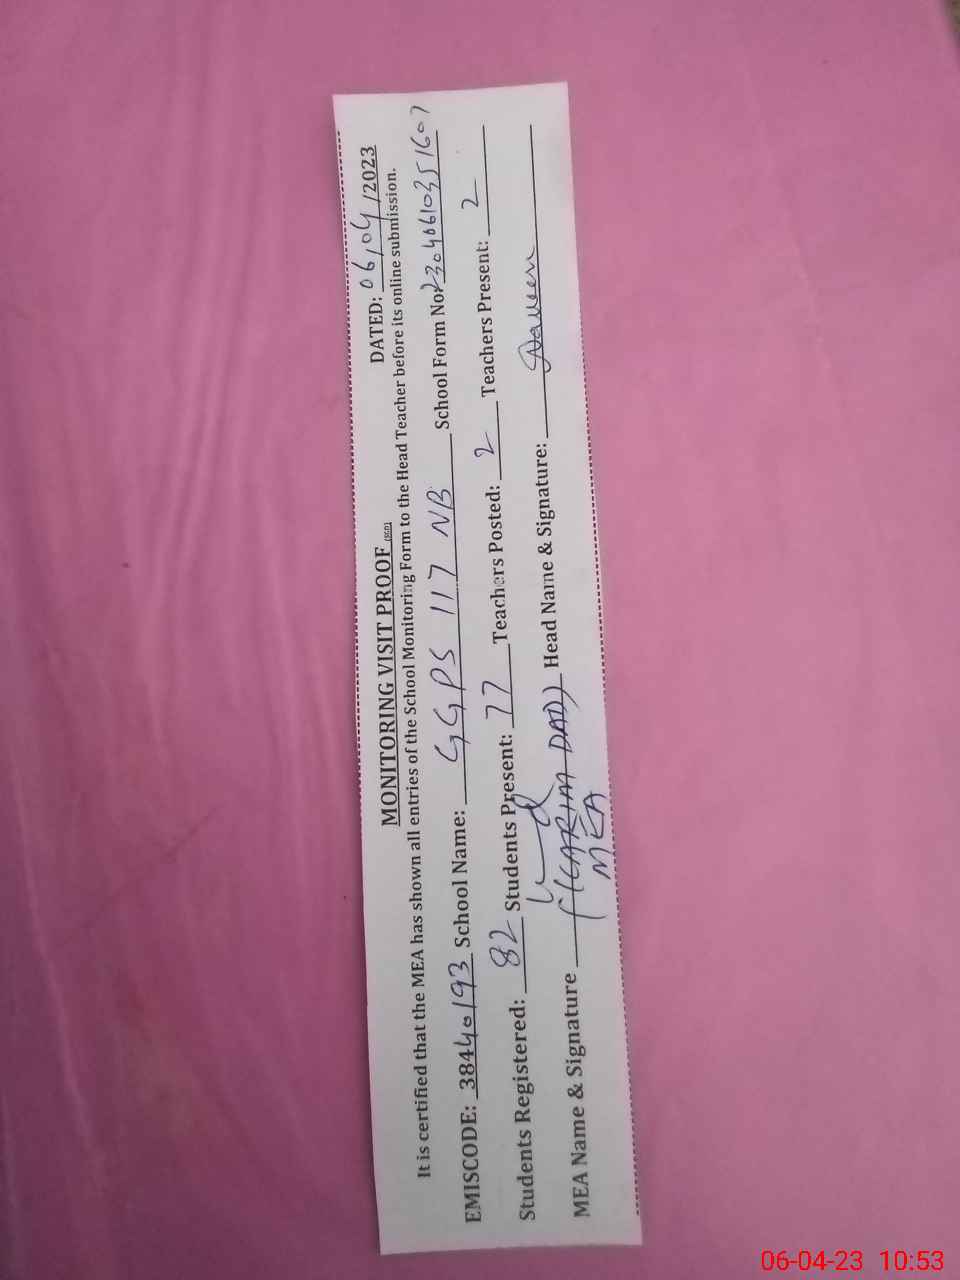 MONITORING VISIT PROOF (SGD)
DATED: 06/04/2023
It is certified that the MEA has shown all entries of the School Monitoring Form to the Head Teacher before its online submission.
EMISCODE: 38440193 School Name: GGPS 117 NB School Form No: 23040610351607
Students Registered: 82 Students Present: 77 Teachers Posted: 2 Teachers Present: 2
MEA Name & Signature (KARIM DAD) Head Name & Signature:
MEA
06-04-23 10:53